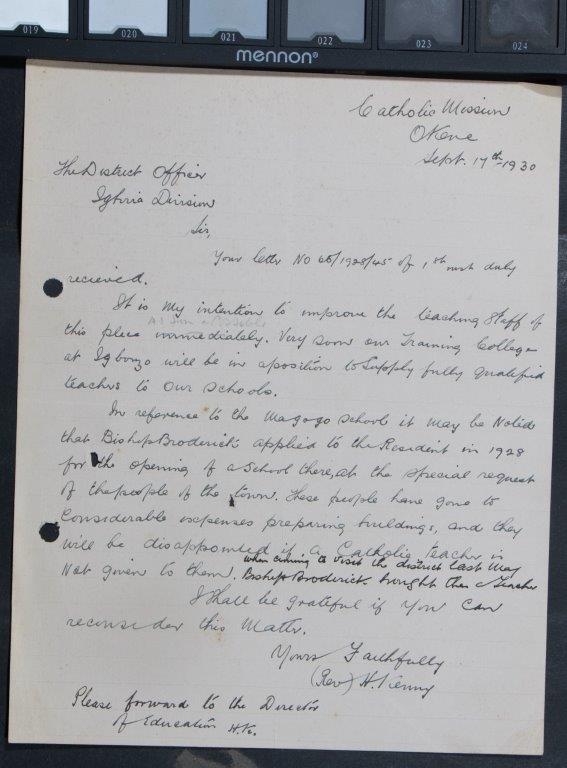 019 020 021 022 023 024
mennon®
Catholic Mission
Okene
Sept. 17th 1930
The District Officer
Igbiria Division
Sir,
Your letter No 65/1928/45 of 1st inst duly
recieved.
It is my intention to improve the teaching staff of
As soon as possible
this place immediately. Very soon our Training College
at Igbonzo will be in aposition to Supply fully qualified
teachers to our schools.
In reference to the Magogo school it may be Noted
that Bishop Broderick applied to the Resident in 1928
for the opening of a School there, at the special request
of the people of the town. These people have gone to
Considerable expenses preparing buildings, and they
will be disappointed if a Catholic teacher is
when coming to visit the district last May
Not given to them. Bishop Broderick brought them a Teacher
I Shall be grateful if You can
reconsider this Matter.
Yours Faithfully
(Rev) H. Kenny
Please forward to the Director
of Education H.K.